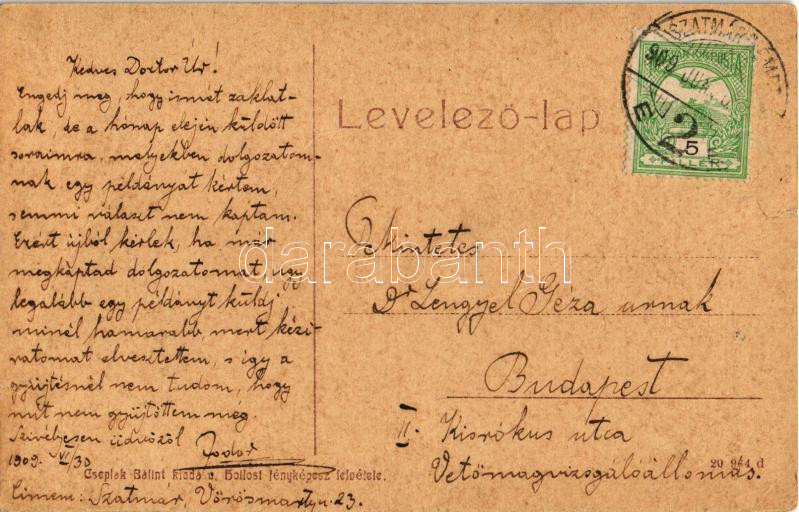 Kedves Doktor Úr!
Engedj meg, hogy ismét zaklat-
lak, de a hónap elején küldött
soraimra, melyekben dolgozatom-
nak egy példányát kértem,
semmi választ nem kaptam.
Ezért újból kérlek, ha már
megkaptad dolgozatomat, úgy
legalább egy példányt küldj
minél hamarabb, mert kézi-
ratomat elvesztettem, s így a
gyűjtésnél nem tudom, hogy
mit nem gyűjtöttem még.
Szívélyesen üdvözöl
1909. VI/30 Fodor
Cseplak Bálint kiadása. Hollósi fényképész felvétele.
Címem: Szatmár, Vörösmarty u. 23.
Levelező-lap
5
FILLÉR
909
E
2
Mintetes
Dr Lengyel Géza urnak
Budapest
II. Kisrókus utca
Vetőmagvizsgálóállomás.
20 964 d
darabanth